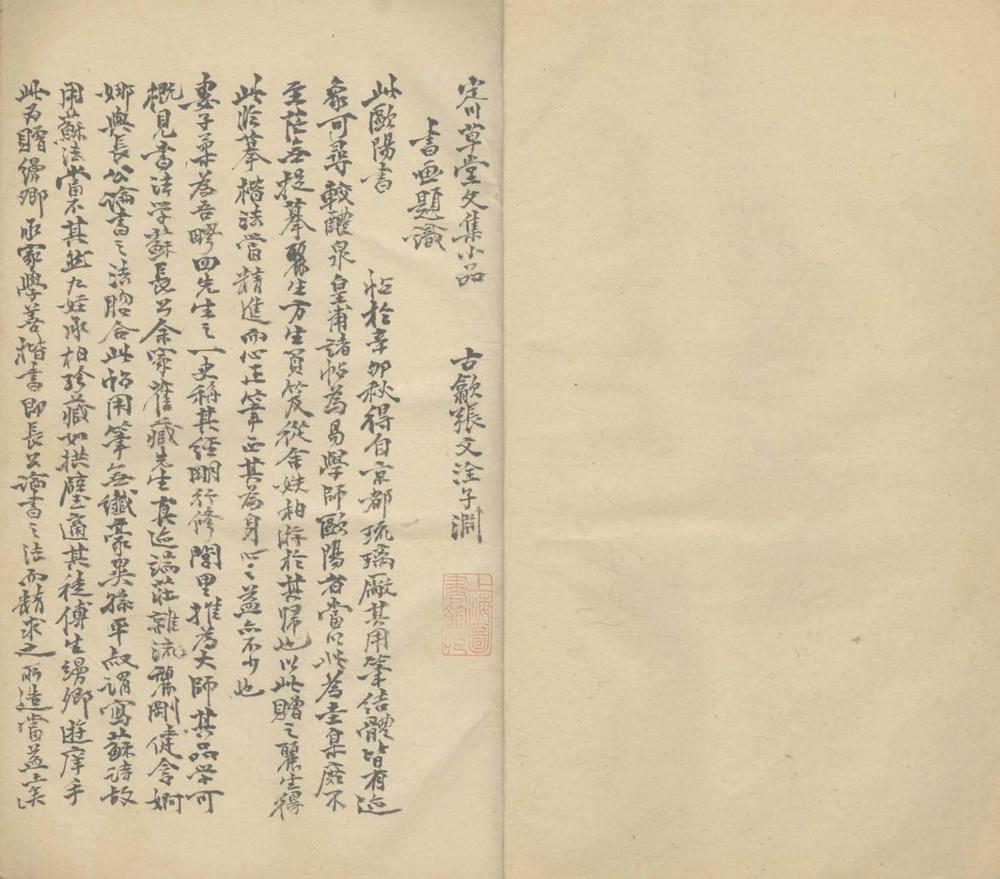 定川草堂文集小品　古歙張文洤子淵
上海圖書館藏
書画題識
此歐陽書　帖於辛卯秋得自京都琉璃厰其用筆结體皆有迹
象可尋較醴泉皇甫諸帖為易學師歐陽者當以此為圭臬庶不
至茫無捉摹麗生方生負笈從余姪相游於其歸也以此贈之麗生得
此臨摹楷法當精進而心正筆正其為身心之益亦不少也
婁子柔為吾疁四先生之一史稱其經明行修閭里推為大師其品学可
概見書法学蘇長公余家舊藏先生真迹端莊雜流麗剛健含婀
娜與長公論書之詩脗合此帖用筆無纖豪異孫平叔謂寫蘇詩故
用蘇法當不其然九姪承柏珍藏如拱璧適其徒傅生縵卿遊庠手
此為贈縵卿承家學善楷書即長公論書之法而精求之所造當益上矣